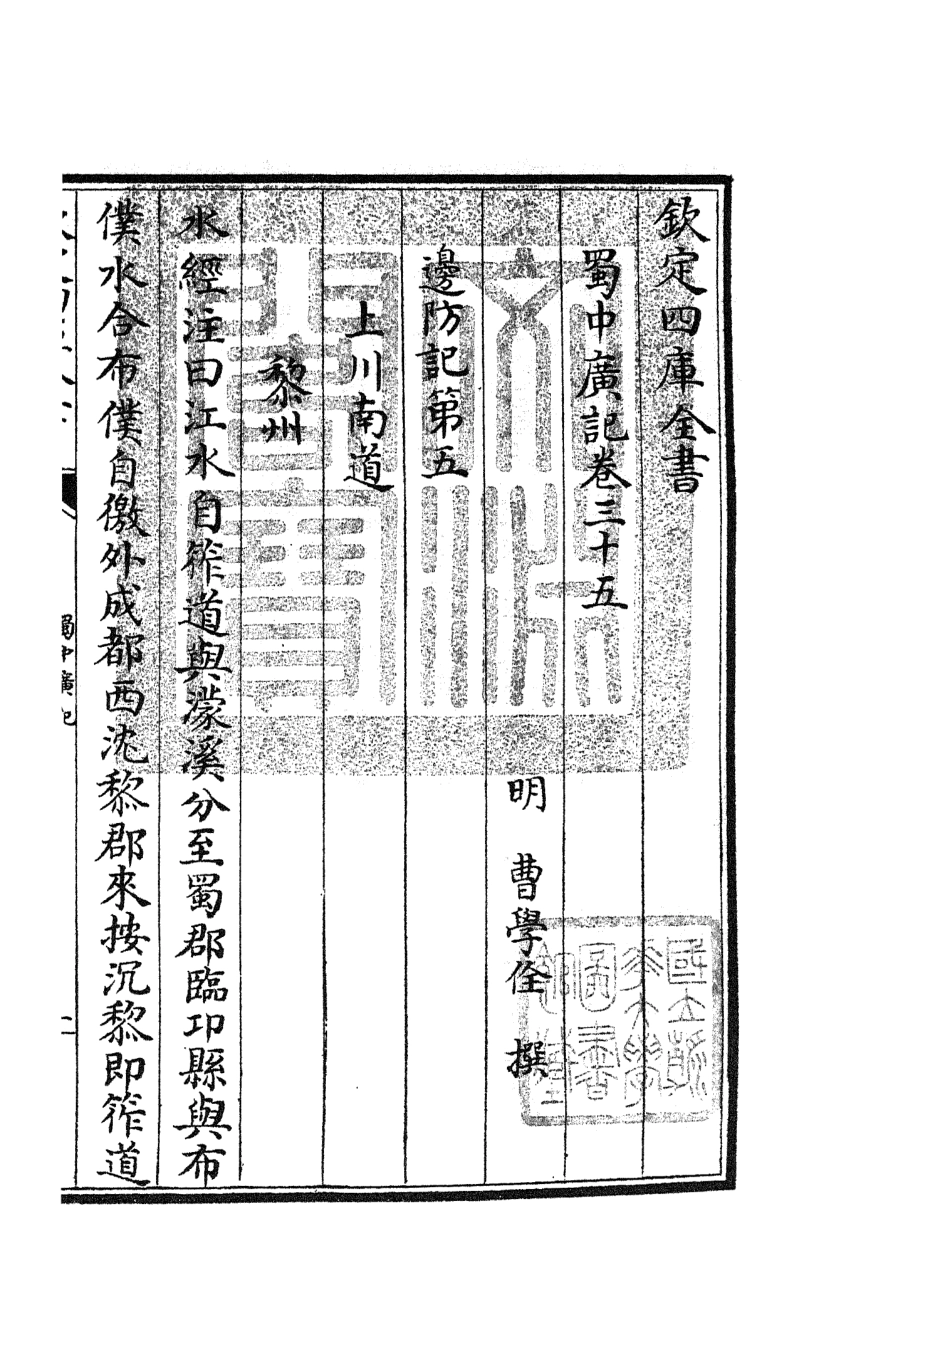 欽定四庫全書
蜀中廣記卷三十五
明 曹學佺 撰
邊防記第五
上川南道
黎州
水經注曰江水自筰道與濛溪分至蜀郡臨邛縣與布
僕水合布僕自徼外成都西沈黎郡來按沉黎即筰道
蜀中廣記